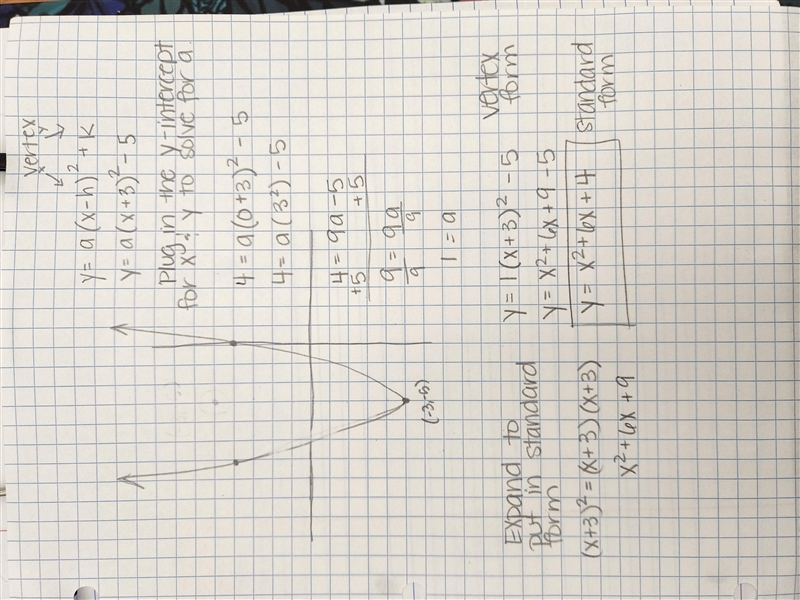 vertex
x y
y = a(x-h)² + k
y = a(x+3)² - 5
Plug in the y-intercept
for x & y to solve for a.
4 = a(0+3)² - 5
4 = a(3²) - 5
4 = 9a - 5
+5 +5
9 = 9a
9 9
1 = a
(-3,-5)
Expand to
put in standard
form
(x+3)² = (x+3)(x+3)
x² + 6x + 9
y = 1(x+3)² - 5 vertex form
y = x² + 6x + 9 - 5
y = x² + 6x + 4 standard form